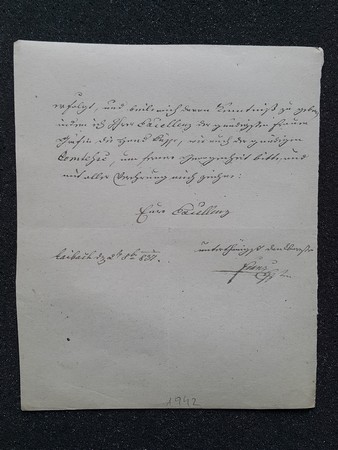 erfolgt, und beeile mich deren Kenntniß zu geben
indem ich Ihrer Excellenz der gnädigsten Frauen
Gräfin die Hand küsse, wie auch der gnädigen
Comtesse, um ferner Gewogenheit bitte, und
mit aller Verehrung mich zeichne:
Eure Excellenz
unterthänigst
Laibach
1942